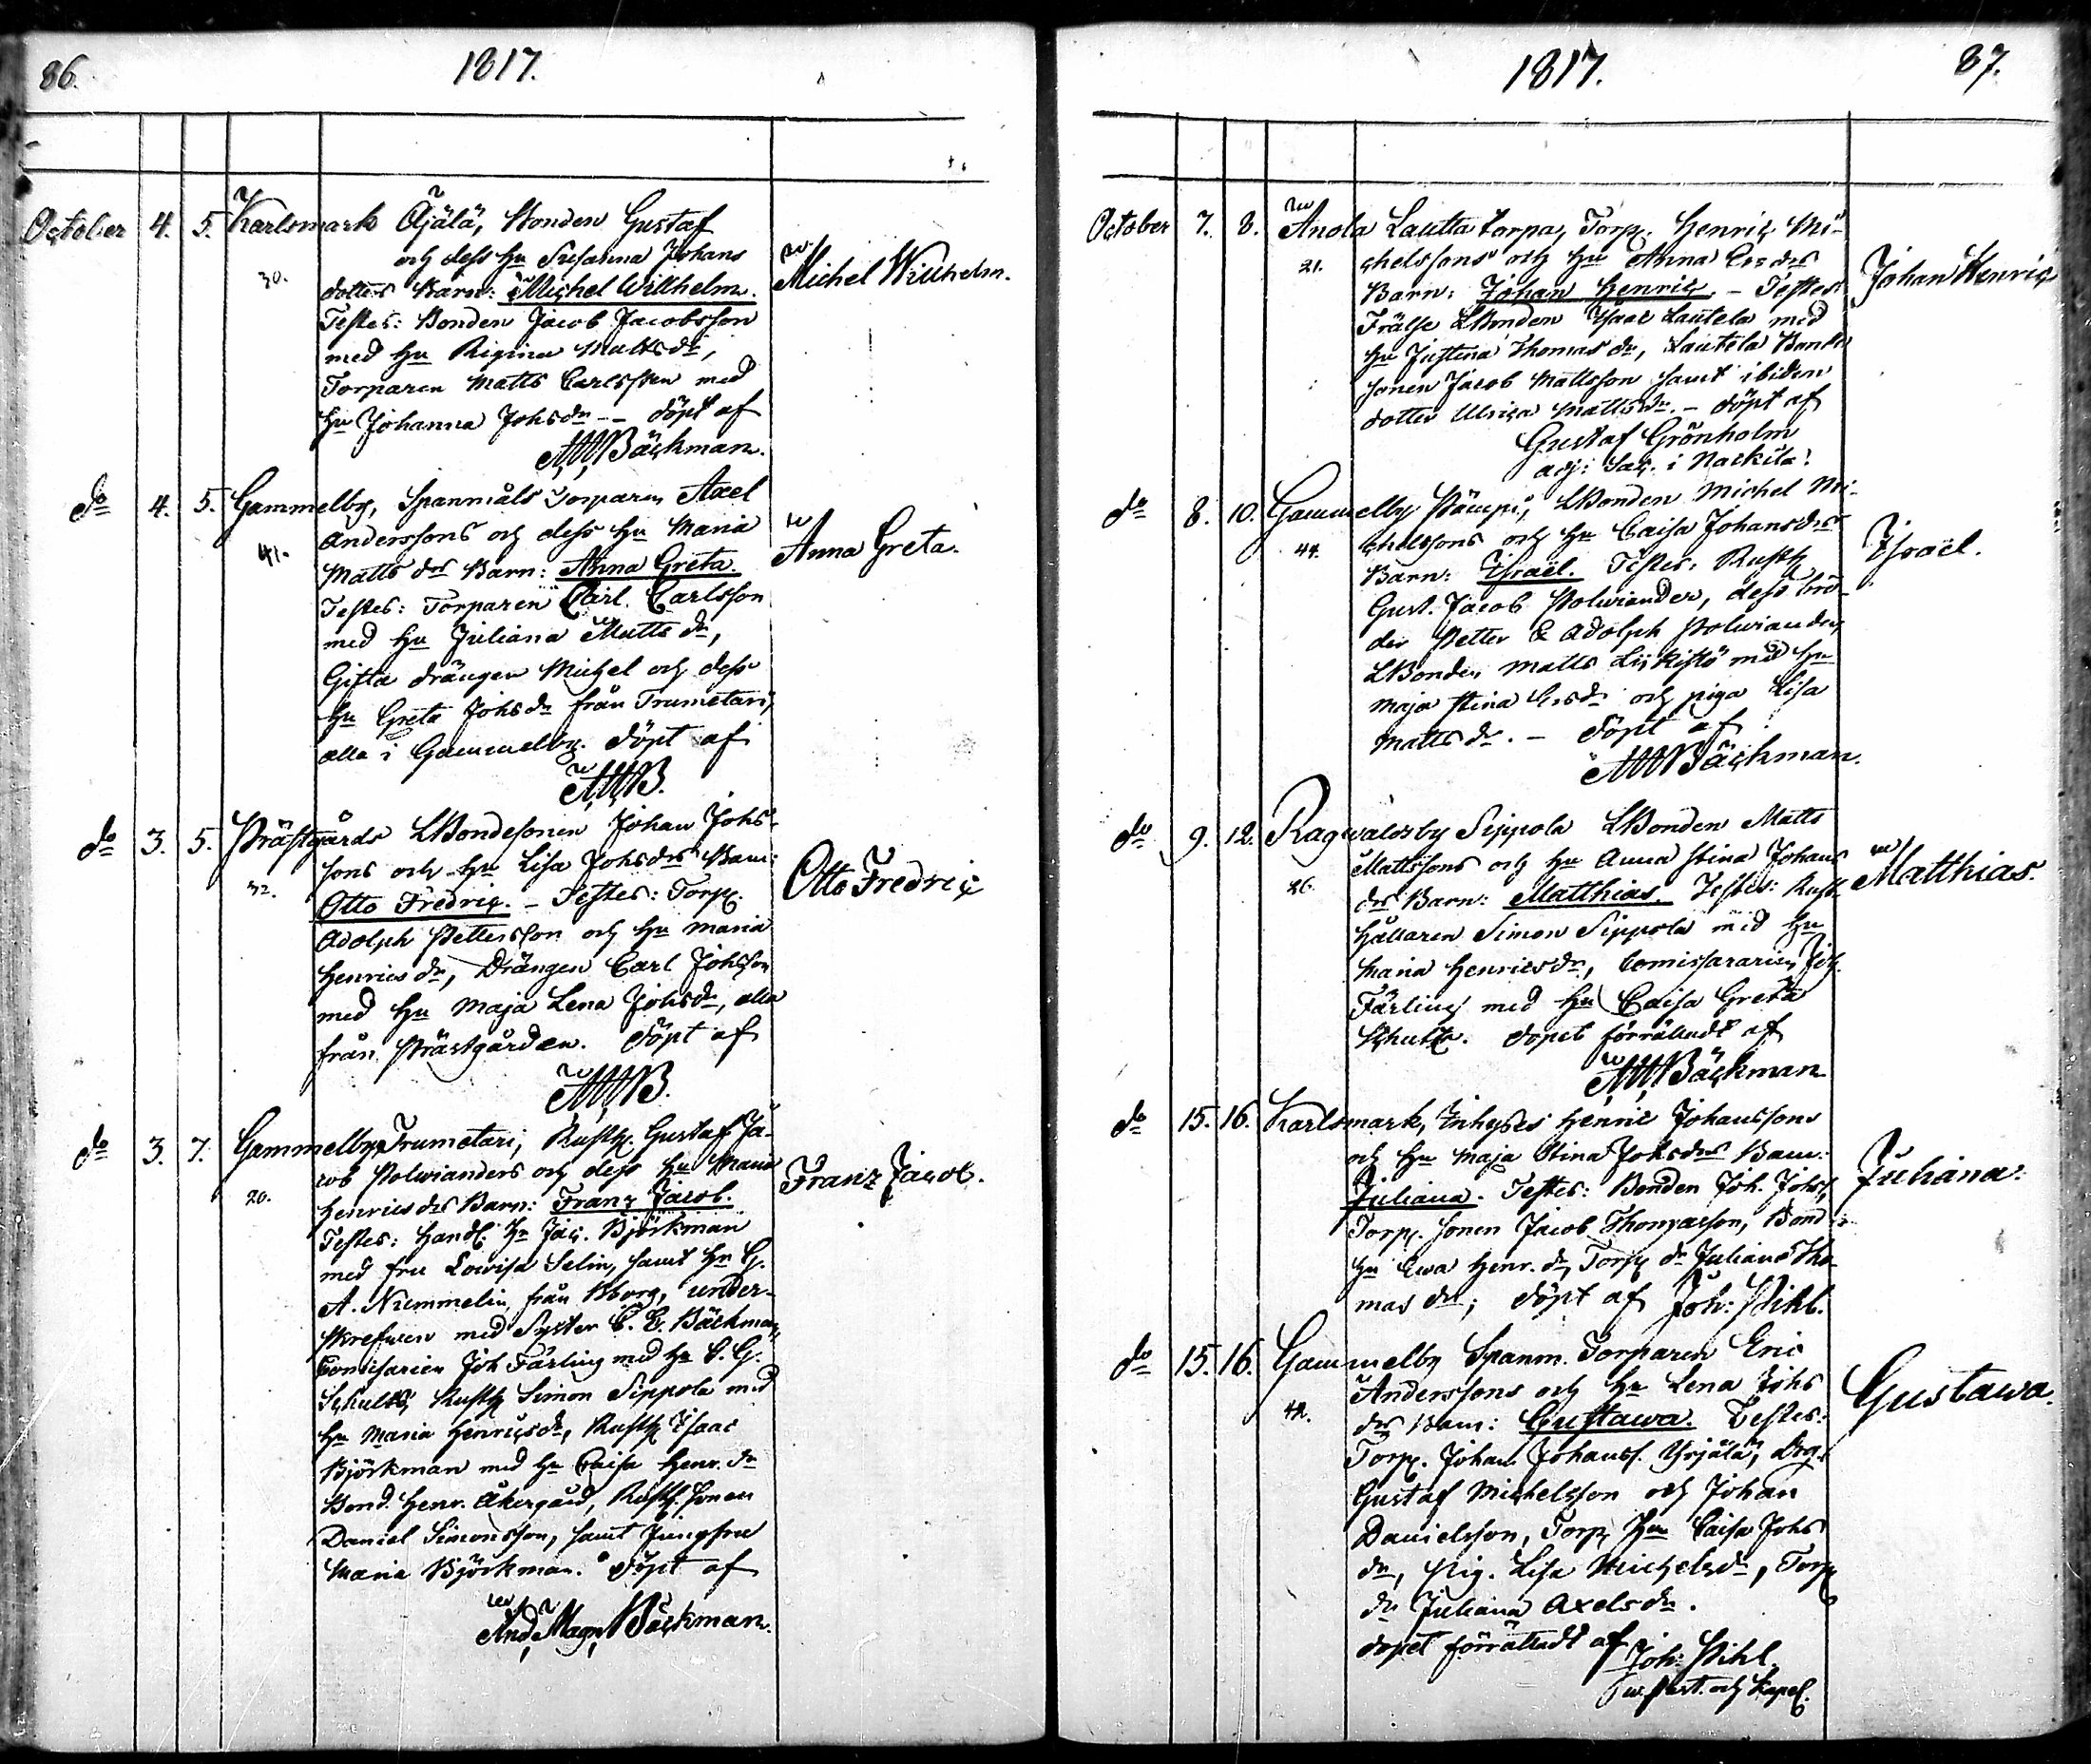 86.
1817.
October 4. 5. Karlsmark Äjälä, Bonden Gustaf
och dess hu Susanna Johans
30.
dotters Barn: Michel Willhelm.
Michel Willhelm.
Testes: Bonden Jacob Jacobsson
med hu Regina Mattsdr,
Torparen Matts Carlsson med
hu Johanna Johsdr -- döpt af
AMBäckman.
do 4. 5. Gammelby, Spanmåls Torparen Axel
Anderssons och dess hu Maria
41.
Matts drs Barn: Anna Greta.
Anna Greta.
Testes: Torparen Carl Carlsson
med hu Juliana Matts dr,
Gifta drängen Michel och dess
hu Greta Johsdr från Trumetari,
alla i Gammelby. döpt af
AMB.
do 3. 5. Prästgårds LBondesonen Johan Johs-
sons och hu Lisa Johsdrs Barn:
32.
Otto Fredric. - Testes: Torp.
Otto Fredric
Adolph Pettersson och hu Maria
Henrics dr, Drängen Carl Johsson
med hu Maja Lena Johsdr, alla
från Prästgården. döpt af
AMB.
do 3. 7. Gammelby Trumetari, Rusth. Gustaf Ja-
cob Polvianders och dess hu Maria
20.
Henrics drs Barn: Franz Jacob.
Franz Jacob.
Testes: Handl. Hr Jac. Björkman
med fru Lovisa Selin, samt Hr G.
A. Nummelin från Bborg, under-
skrefwen med Syster C. E. Bäckman,
Comissarien Joh Färling med hu C. G.
Schultz, Rusth Simon Sippola med
hu Maria Henricsdr, Rusth Isaac
Björkman med hu Caisa Henr. dr
Bond. Henr. Åkergård, Rusth. sonen
Daniel Simonsson, samt Jungfru
Maria Björkman. döpt af
And. Magn. Bäckman.
1817.
87.
October 7. 8. Anola Lautta torpa, Torp. Henric Mi-
21.
chelssons och hu Anna Ers drs
Barn: Johan Henric. - Testes
Johan Henric
Frälse LBonden Isaac Lautela med
hu Justina Thomas dr, Lautela Bonde
sonen Jacob Mattsson samt ibidem
dotter Ulrica Mattsdr. - döpt af
Gustaf Grönholm
adj: Sac. i Nackila.
do 8. 10. Gammelby Pämpi, LBonden Michel Mi-
44.
chelssons och hu Caisa Johansdrs
Barn: Israël. Testes: Rusth
Israël.
Gust. Jacob Polviander, dess brö-
der Petter & Adolph Polviander,
LBonden Matts Liskistö med hu
Maja Stina Ersdr och piga Lisa
Mattsdr. - döpt af
AMBäckman.
do 9. 12. Ragwaldsby Sippola LBonden Matts
Mattssons och hu Anna Stina Johans
26.
drs Barn: Matthias. Testes: Rust-
Matthias.
hållaren Simon Sippola med hu
Maria Henricsdr, Comissararien Joh.
Färling med hu Caisa Greta
Schultz. dopet förrättadt af
AMBäckman
do 15. 16. Karlsmark, Inhyses Henric Johanssons
och hu Maja Stina Johsdrs Barn:
Juliana. Testes: Bonden Joh. Johss,
Juliana.
Torp. sonen Jacob Thomasson, Bond
hu Ewa Henr. dr, Torp dr Juliana Tho
mas dr; döpt af Joh: Pihl.
do 15. 16. Gammelby Spanm. Torparen Eric
Anderssons och hu Lena Johs
42.
drs Barn: Gustawa. Testes:
Gustawa.
Torp. Johan Johanss. Yrjälä, Drg.
Gustaf Michelsson och Johan
Danielsson, Torp hu Caisa Johs
dr, Pig. Lisa Michelsdr, Torp
dr Juliana Axelsdr.
dopet förrättadt af
Joh: Pihl.
w. Past. och Kapel.